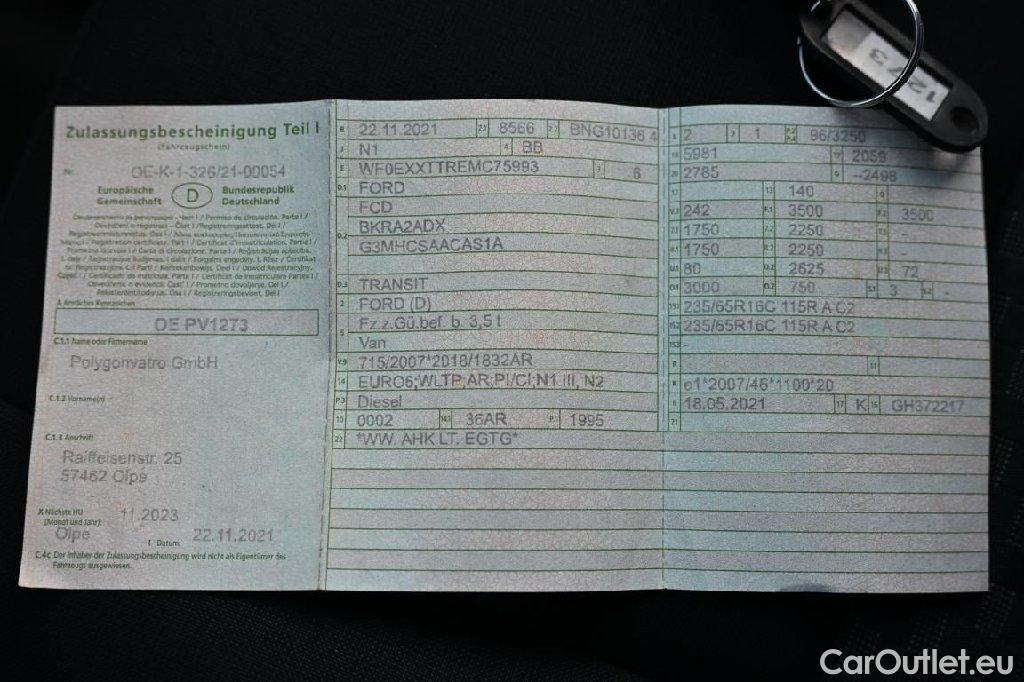 Zulassungsbescheinigung Teil I
(Fahrzeugschein)
Nr. OE-K-1-326/21-00054
Europäische Gemeinschaft
D
Bundesrepublik Deutschland
A Amtliches Kennzeichen
OE PV1273
C.1.1 Name oder Firmenname
Polygonvatro GmbH
C.1.2 Vorname(n)
C.1.3 Anschrift
Raiffeisenstr. 25
57462 Olpe
X Nächste HU (Monat und Jahr) 11.2023
Olpe
I Datum: 22.11.2021
C.4c Der Inhaber der Zulassungsbescheinigung wird nicht als Eigentümer des
Fahrzeugs ausgewiesen.
B 22.11.2021 2.1 8566 2.2 BNG10136 4
J N1 4 BB
E WF0EXXTTREMC75993 3 6
D.1 FORD
FCD
D.2 BKRA2ADX
G3MHCSAACAS1A
D.3 TRANSIT
2 FORD (D)
5 Fz.z.Gü.bef. b. 3,5 t
Van
V.9 715/2007*2018/1832AR
14 EURO6;WLTP;AR;PI/CI;N1 III, N2
P.3 Diesel
10 0002 14.1 36AR P.1 1995
22 *WW. AHK LT. EGTG*
L 2 9 1 P.2 P.4 96/3250
5981 19 2059
20 2785 G --2498
12 13 140 Q
V.7 242 F.1 3500 F.2 3500
1750 2250
1750 2250 -
U.1 80 O.2 2625 U.3 72
O.1 3000 O.2 750 S.1 3 S.2
15.1 235/65R16C 115R A C2
15.2 235/65R16C 115R A C2
15.3 -
R 11
K e1*2007/46*1100*20
6 18.05.2021 17 K 16 GH372217
21
1273
CarOutlet.eu